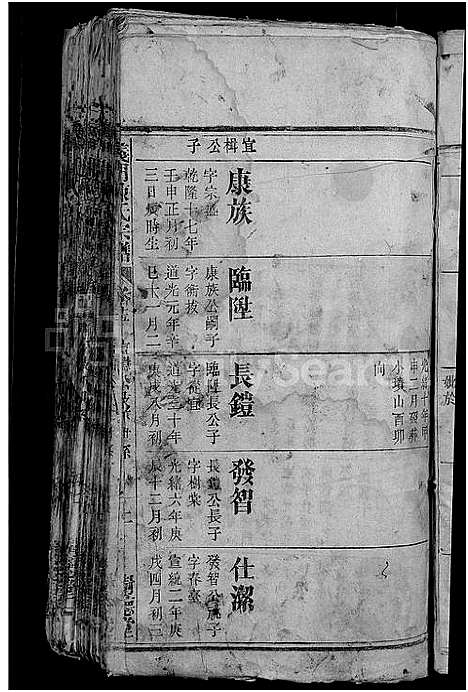 向
小墳山酉卯
申二月癸葬
光緒十年甲
宜楫公子
康族
字宗
乾隆十七年
壬申正月初
三日 時生
臨陞
康族公嗣子
字衔拔
道光元年辛
巳十一月二
長鎧
臨陞長公子
字從宜
道光三十年
庚戌八月初
發智
長鎧公長子
字樹棠
光緒六年庚
辰十二月初
仕潔
發智公 子
字春臺
宣統二年庚
戌四月初二
義門陳氏宗譜
樹德堂